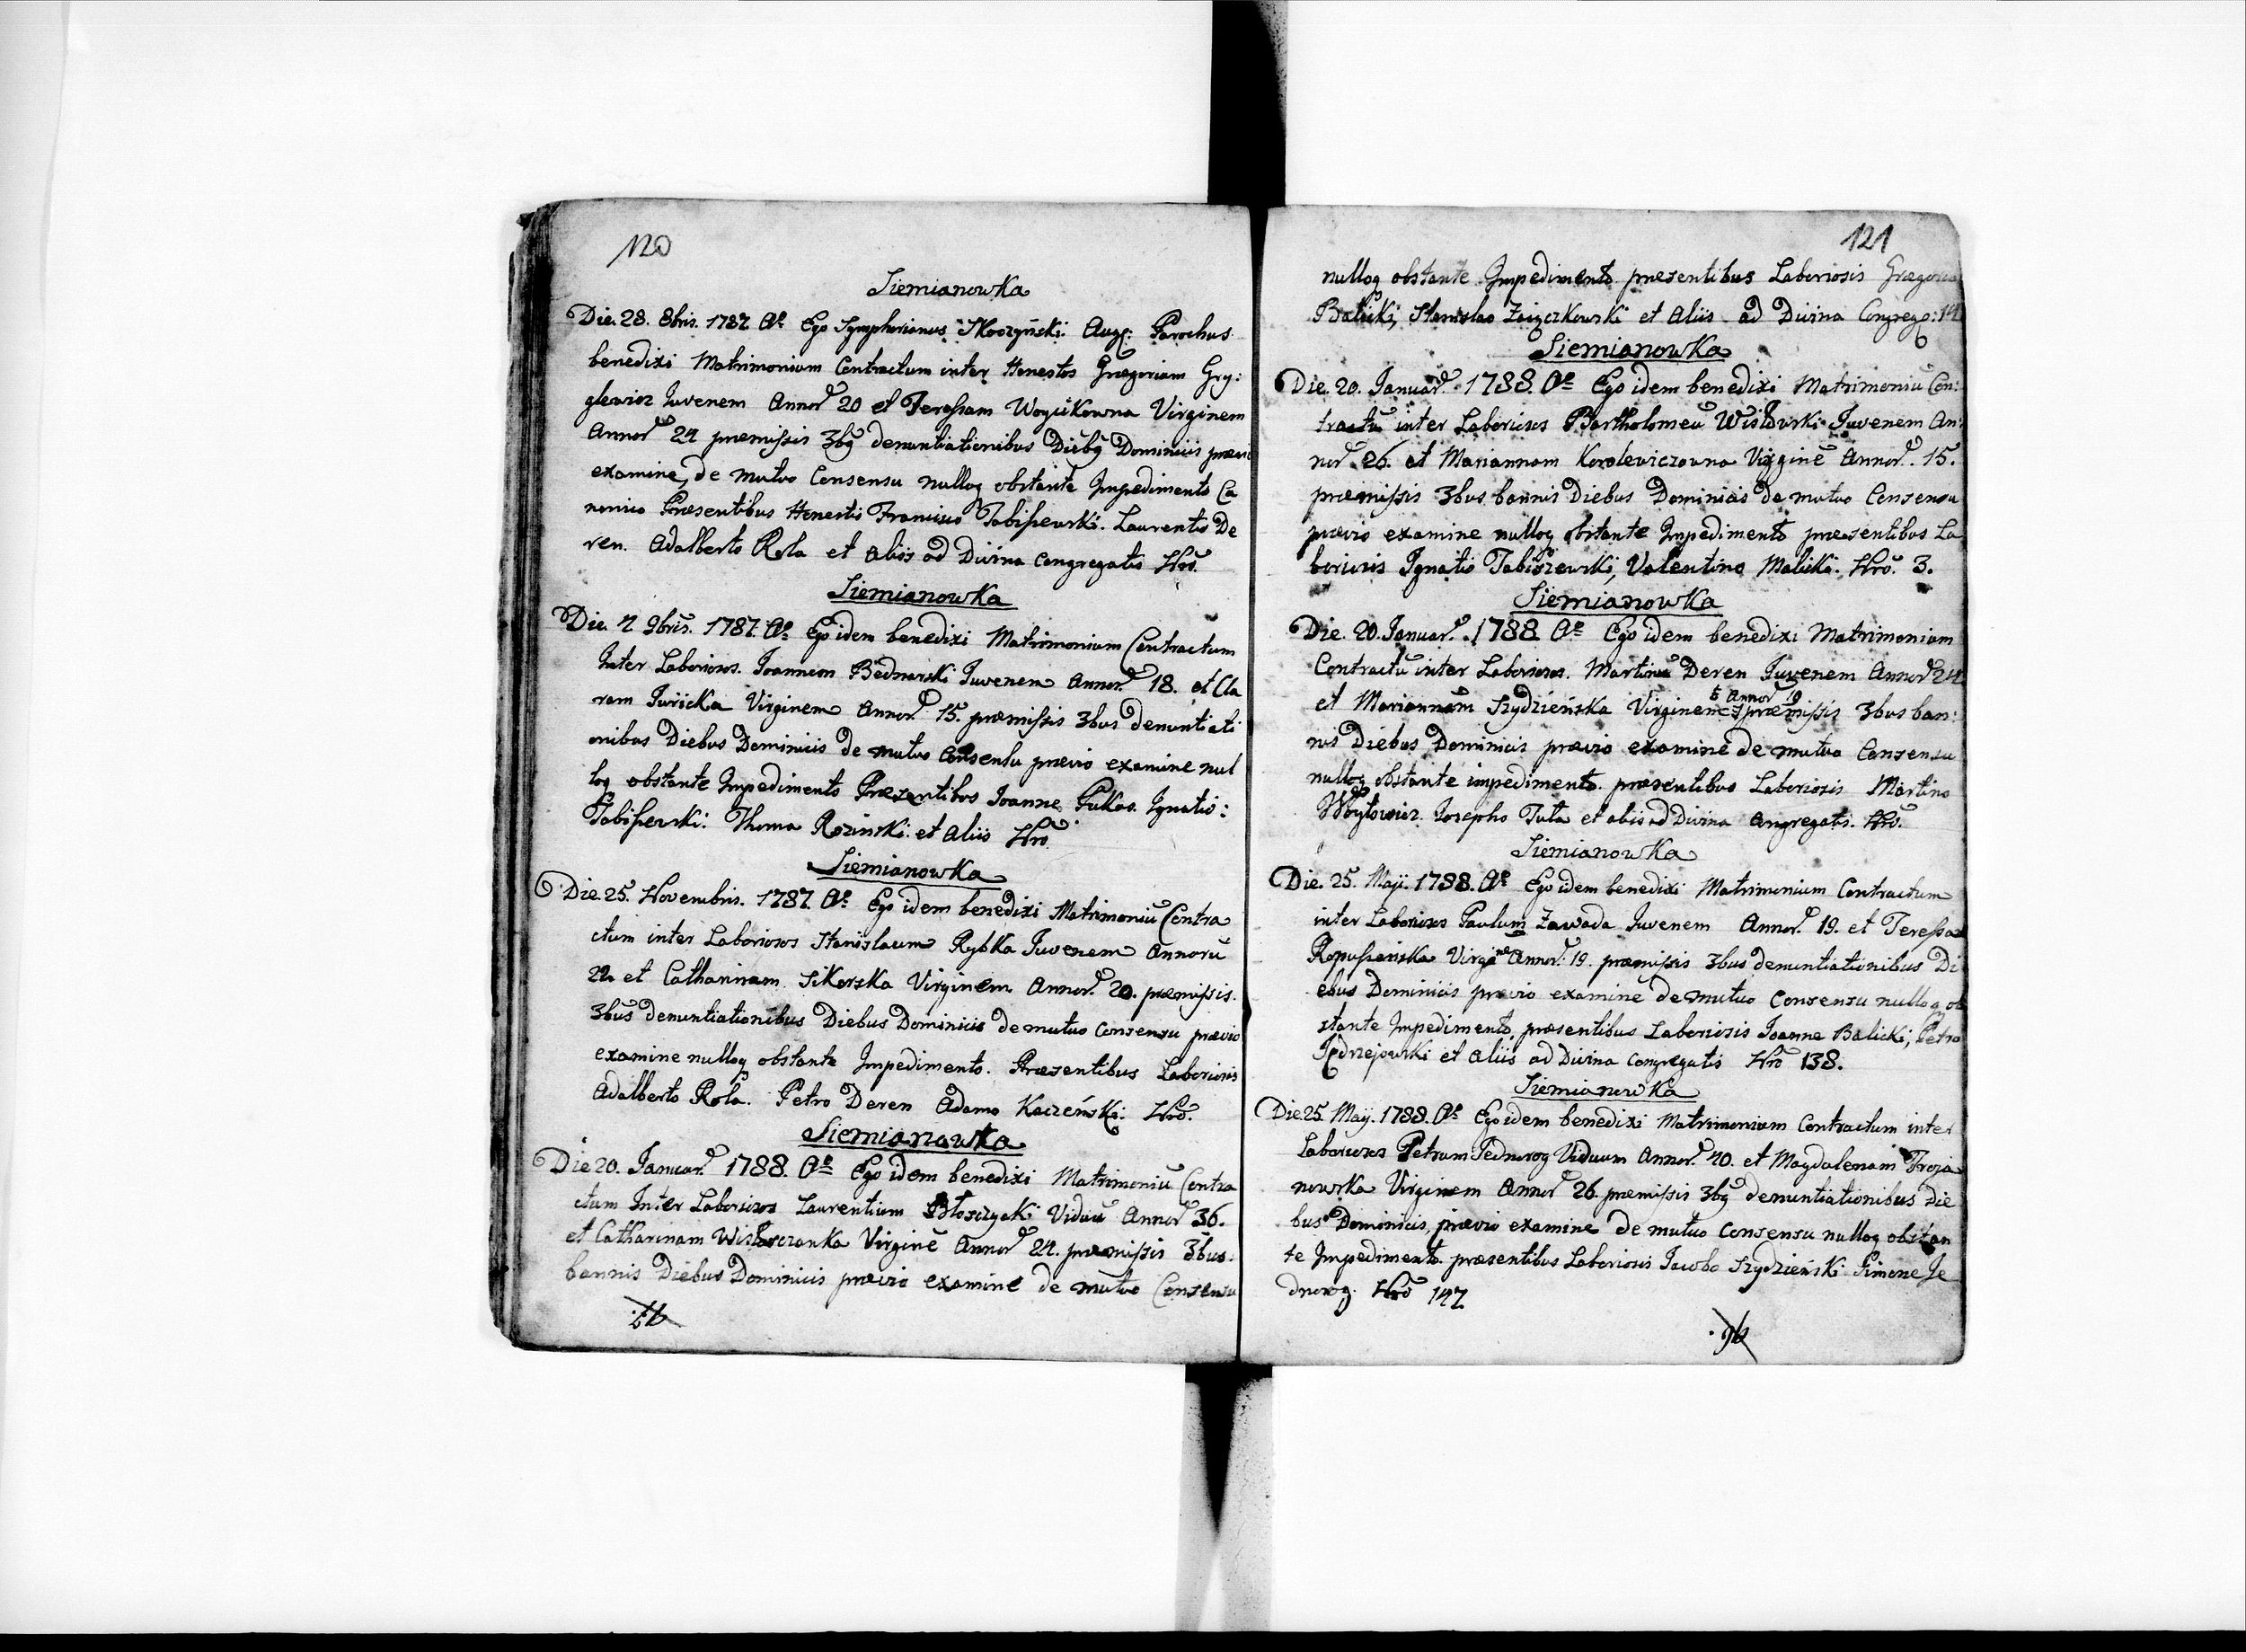 120
Siemianowka
Die. 28. 8bris. 1787. Ao. Ego Symphorianus Skoczyński. Aug: Parochus
benedixi Matrimonium Contractum inter Honestos Gregorium Gry:
glewicz Juvenem Annor 20 et Teressam Woycikowna Virginem
Annor 24 præmissis 3bq denuntiationibus Diebq Dominicis prævi
examine, de mutuo Consensu nulloq obstante Impedimento Ca
nonico Præsentibus Honestis Francisco Tobissewski. Laurentio De
ren. Adalberto Rola et aliis ad Divina congregatis Hro.
Siemianowka
Die. 9bris. 1787. Ao. Ego idem benedixi Matrimonium Contractum
Inter Laboriosos. Joannem Bednarski Juvenem Annor. 18. et Cla
ram Virginem Annor. 15. præmissis 3bus denuntiati
onibus Diebus Dominicis de mutuo Consensu prævio examine nul
loq obstante Impedimento Præsentibus Joanne Pukas. Ignatio:
Tobissewski. Thoma Rozinski. et Aliis Hro
Siemianowka
Die. 25. Novembris. 1787. Ao. Ego idem benedixi Matrimoniū Contra
ctum inter Laboriosos Stanislaum Rybka Juvenem Annorū
22. et Catharinam Sikorska Virginem Annor. 20. præmissis.
3bus denuntiationibus Diebus Dominicis de mutuo Consensu prævio
examine nulloq obstante Impedimento. Præsentibus Laboriosis
Adalberto Rola. Petro Deren Adamo Kaczeński. Hro.
Siemianowka
Die 20. Januar. 1788. Ao. Ego idem benedixi Matrimoniū Contra
ctum Inter Laboriosos Laurentium Błoszycki Viduū Annor 36.
et Catharinam Virginē Annor 24. præmissis 3bus.
bannis Diebus Dominicis prævio examine de mutuo Consensu
121
nulloq obstante Impedimento præsentibus Laboriosis Gregorio
Balicki, Stanislao Zaięczkowski et Aliis ad Divina Congreg: 14
Siemianowka
Die. 20. Januar. 1788. Ao. Ego idem benedixi Matrimoniū Con:
tractū inter Laboriosos Bartholomeū Wisłowski Juvenem An:
nor. 26. et Mariannam Korolewiczowna Virginē Annor. 15.
præmissis 3bus bannis Diebus Dominicis de mutuo Consensu
prævio examine nulloq obstante Impedimento præsentibus La
boriosis Ignatio Tabiszewski, Valentino Malicki. Hro. 3.
Siemianowka
Die. 20. Januar. 1788. Ao. Ego idem benedixi Matrimonium
Contractū inter Laboriosos. Martinū Deren Juvenem Annor 24
et Mariannam Szydzieńska Virginem Annor 19 præmissis 3bus ban:
nis Diebus Dominicis prævio examine de mutuo Consensu
nulloq obstante impedimento. præsentibus Laboriosis Martino
Woytowicz. Josepho Tuta et aliis ad Divina Congregatis. Hro.
Siemianowka
Die. 25. Maji. 1788. Ao. Ego idem benedixi Matrimonium Contractum
inter Laboriosos Paulum Zawada Juvenem Annor. 19. et Teressa
Ropussańska Virginē Annor. 19. præmissis 3bus denuntiationibus Di
ebus Dominicis prævio examine de mutuo Consensu nulloq ob
stante Impedimento, præsentibus Laboriosis Joanne Balicki, Petro
Jędrzejowski et Aliis ad Divina congregatis Hro 138.
Siemianowka
Die 25. Maij. 1788. Ao. Ego idem benedixi Matrimonium Contractum inter
Laboriosos Petrum Jednorog Viduum Annor. 40. et Magdalenam Troja
nowska Virginem Annor 26. præmissis 3bq denuntiationibus Die
bus Dominicis, prævio examine de mutuo Consensu nulloq obstan
te Impedimento præsentibus Laboriosis Jacobo Szydzieński Simone Je
dnorog. Hro 147